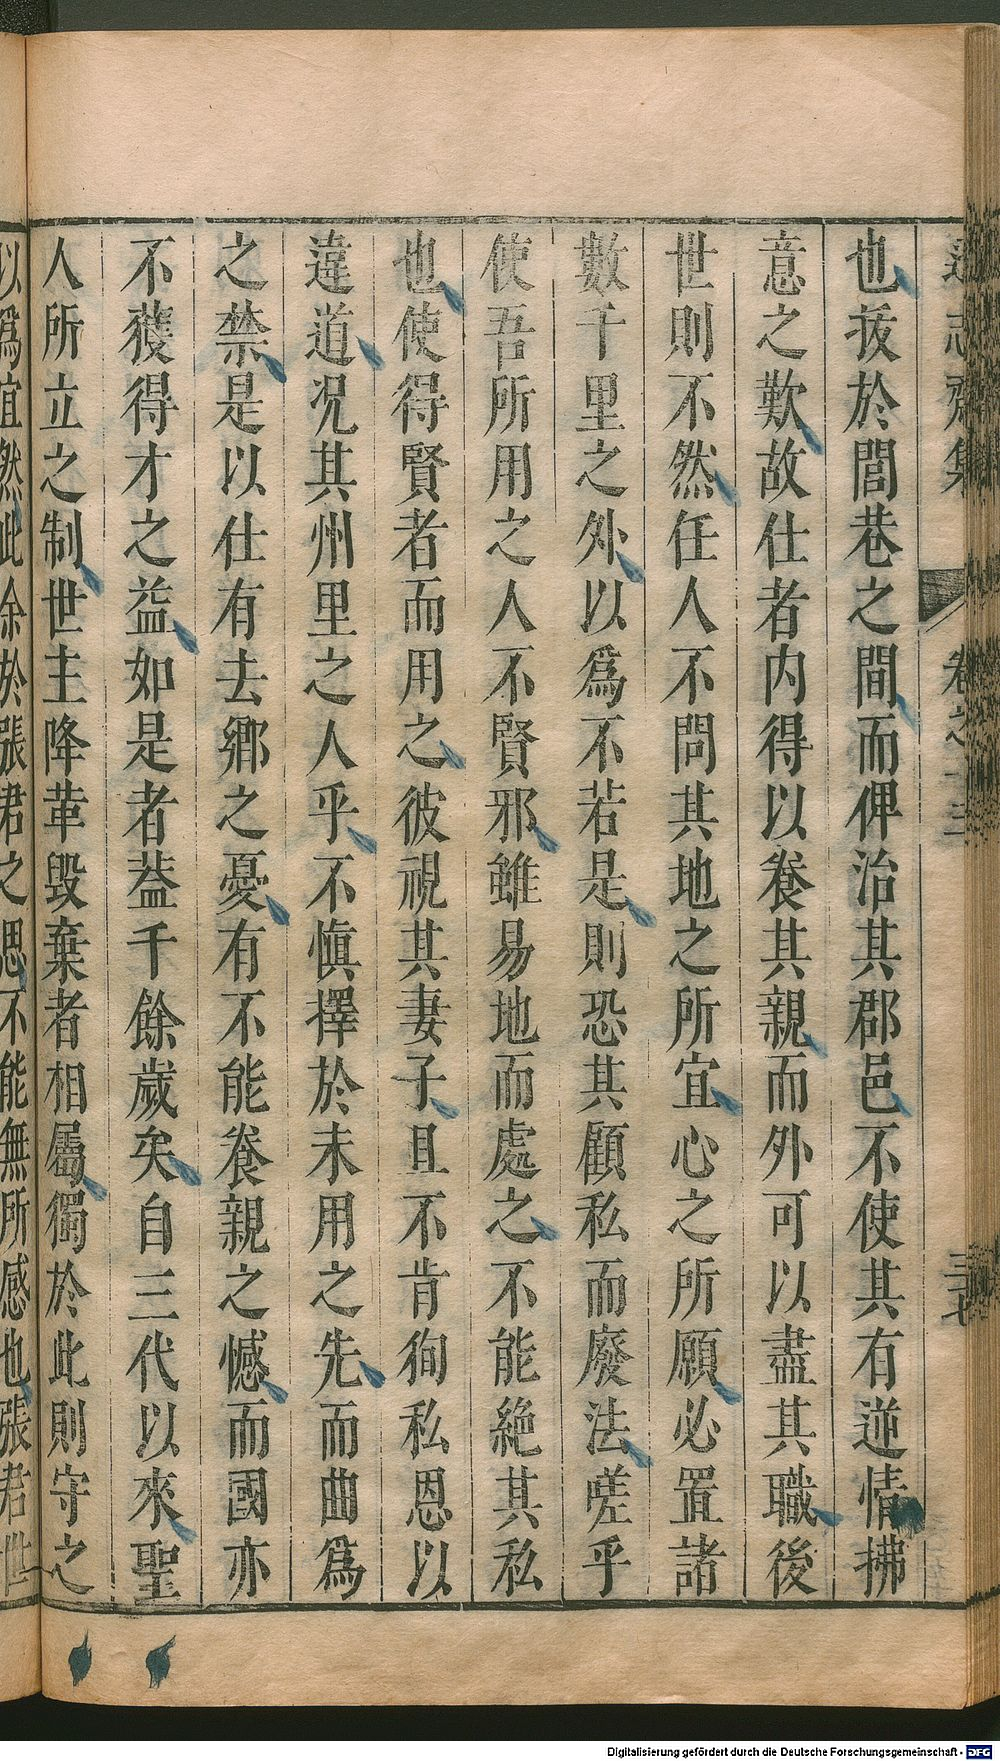 遜志齋集
卷之十三
三七
也拔於閭巷之間而俾治其郡邑不使其有逆情拂
意之歎故仕者内得以養其親而外可以盡其職後
世則不然任人不問其地之所宜心之所願必置諸
數千里之外以為不若是則恐其顧私而廢法嗟乎
使吾所用之人不賢邪雖易地而處之不能絶其私
也使得賢者而用之彼視其妻子且不肯狥私恩以
違道况其州里之人乎不慎擇於未用之先而曲為
之禁是以仕有去鄉之憂有不能養親之憾而國亦
不獲得才之益如是者葢千餘歲矣自三代以來聖
人所立之制世主降革毀棄者相屬獨於此則守之
以為宜然此余於張君之思不能無所感也張君世
Digitalisierung gefördert durch die Deutsche Forschungsgemeinschaft - DFG